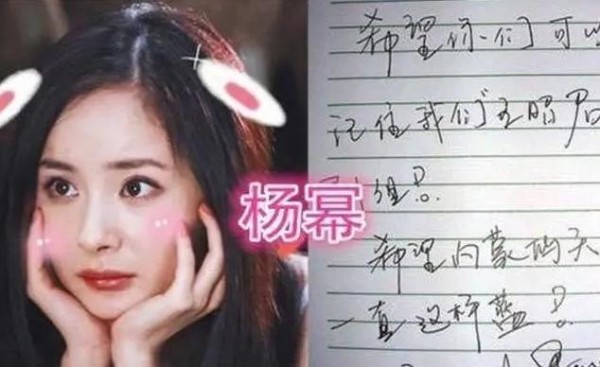 杨幂
希望你们可以
记住我们王昭君
组！
希望内蒙的天
一直这样蓝！